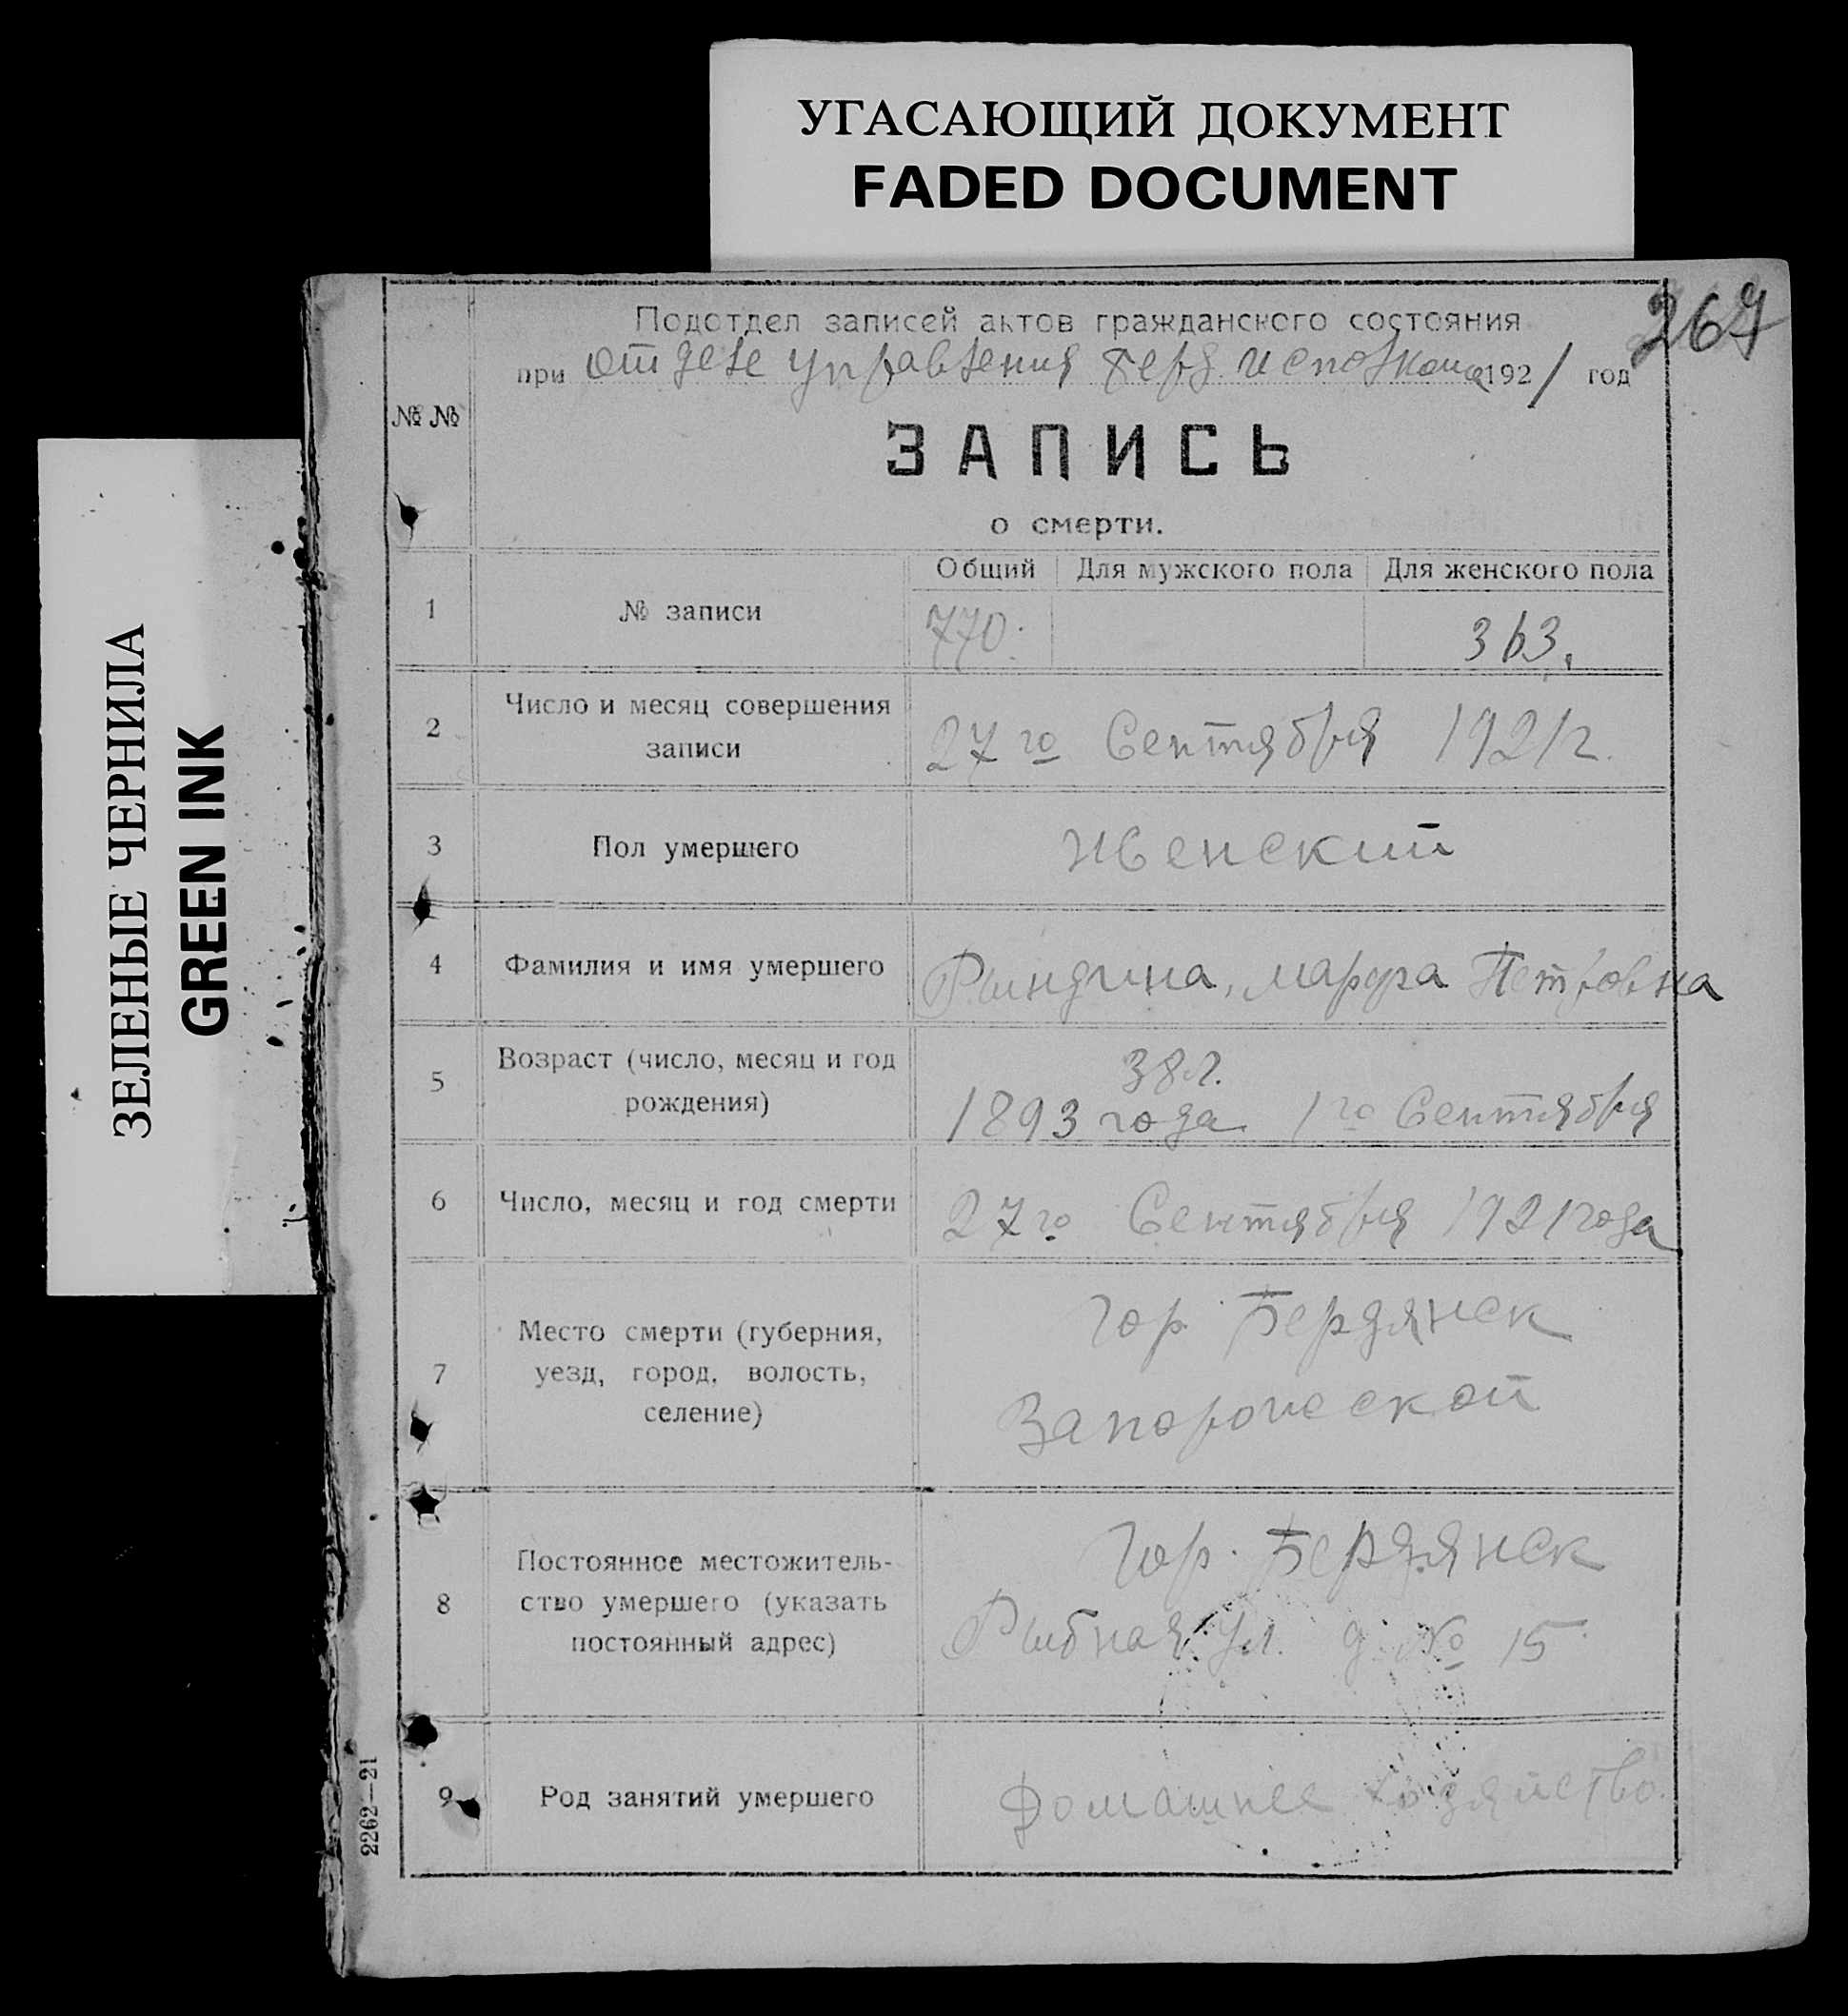 УГАСАЮЩИЙ ДОКУМЕНТ
FADED DOCUMENT
ЗЕЛЕНЫЕ ЧЕРНИЛА
GREEN INK
267
Подотдел записей актов гражданского состояния
при отделе управления Берд. исполкома 1921 год
№ №
ЗАПИСЬ
о смерти.
Общий Для мужского пола Для женского пола
1 № записи 770. 363.
2 Число и месяц совершения
записи
27го Сентября 1921г.
3 Пол умершего Женский
4 Фамилия и имя умершего Рындина, Марфа Петровна
5 Возраст (число, месяц и год
рождения)
38л.
1893 года 1го Сентября
6 Число, месяц и год смерти 27го Сентября 1921 года
7 Место смерти (губерния,
уезд, город, волость,
селение)
Гор. Бердянск
Запорожской
8 Постоянное местожитель-
ство умершего (указать
постоянный адрес)
Гор. Бердянск
Рыбная ул. д. № 15
9 Род занятий умершего Домашнее хозяйство.
2262—21